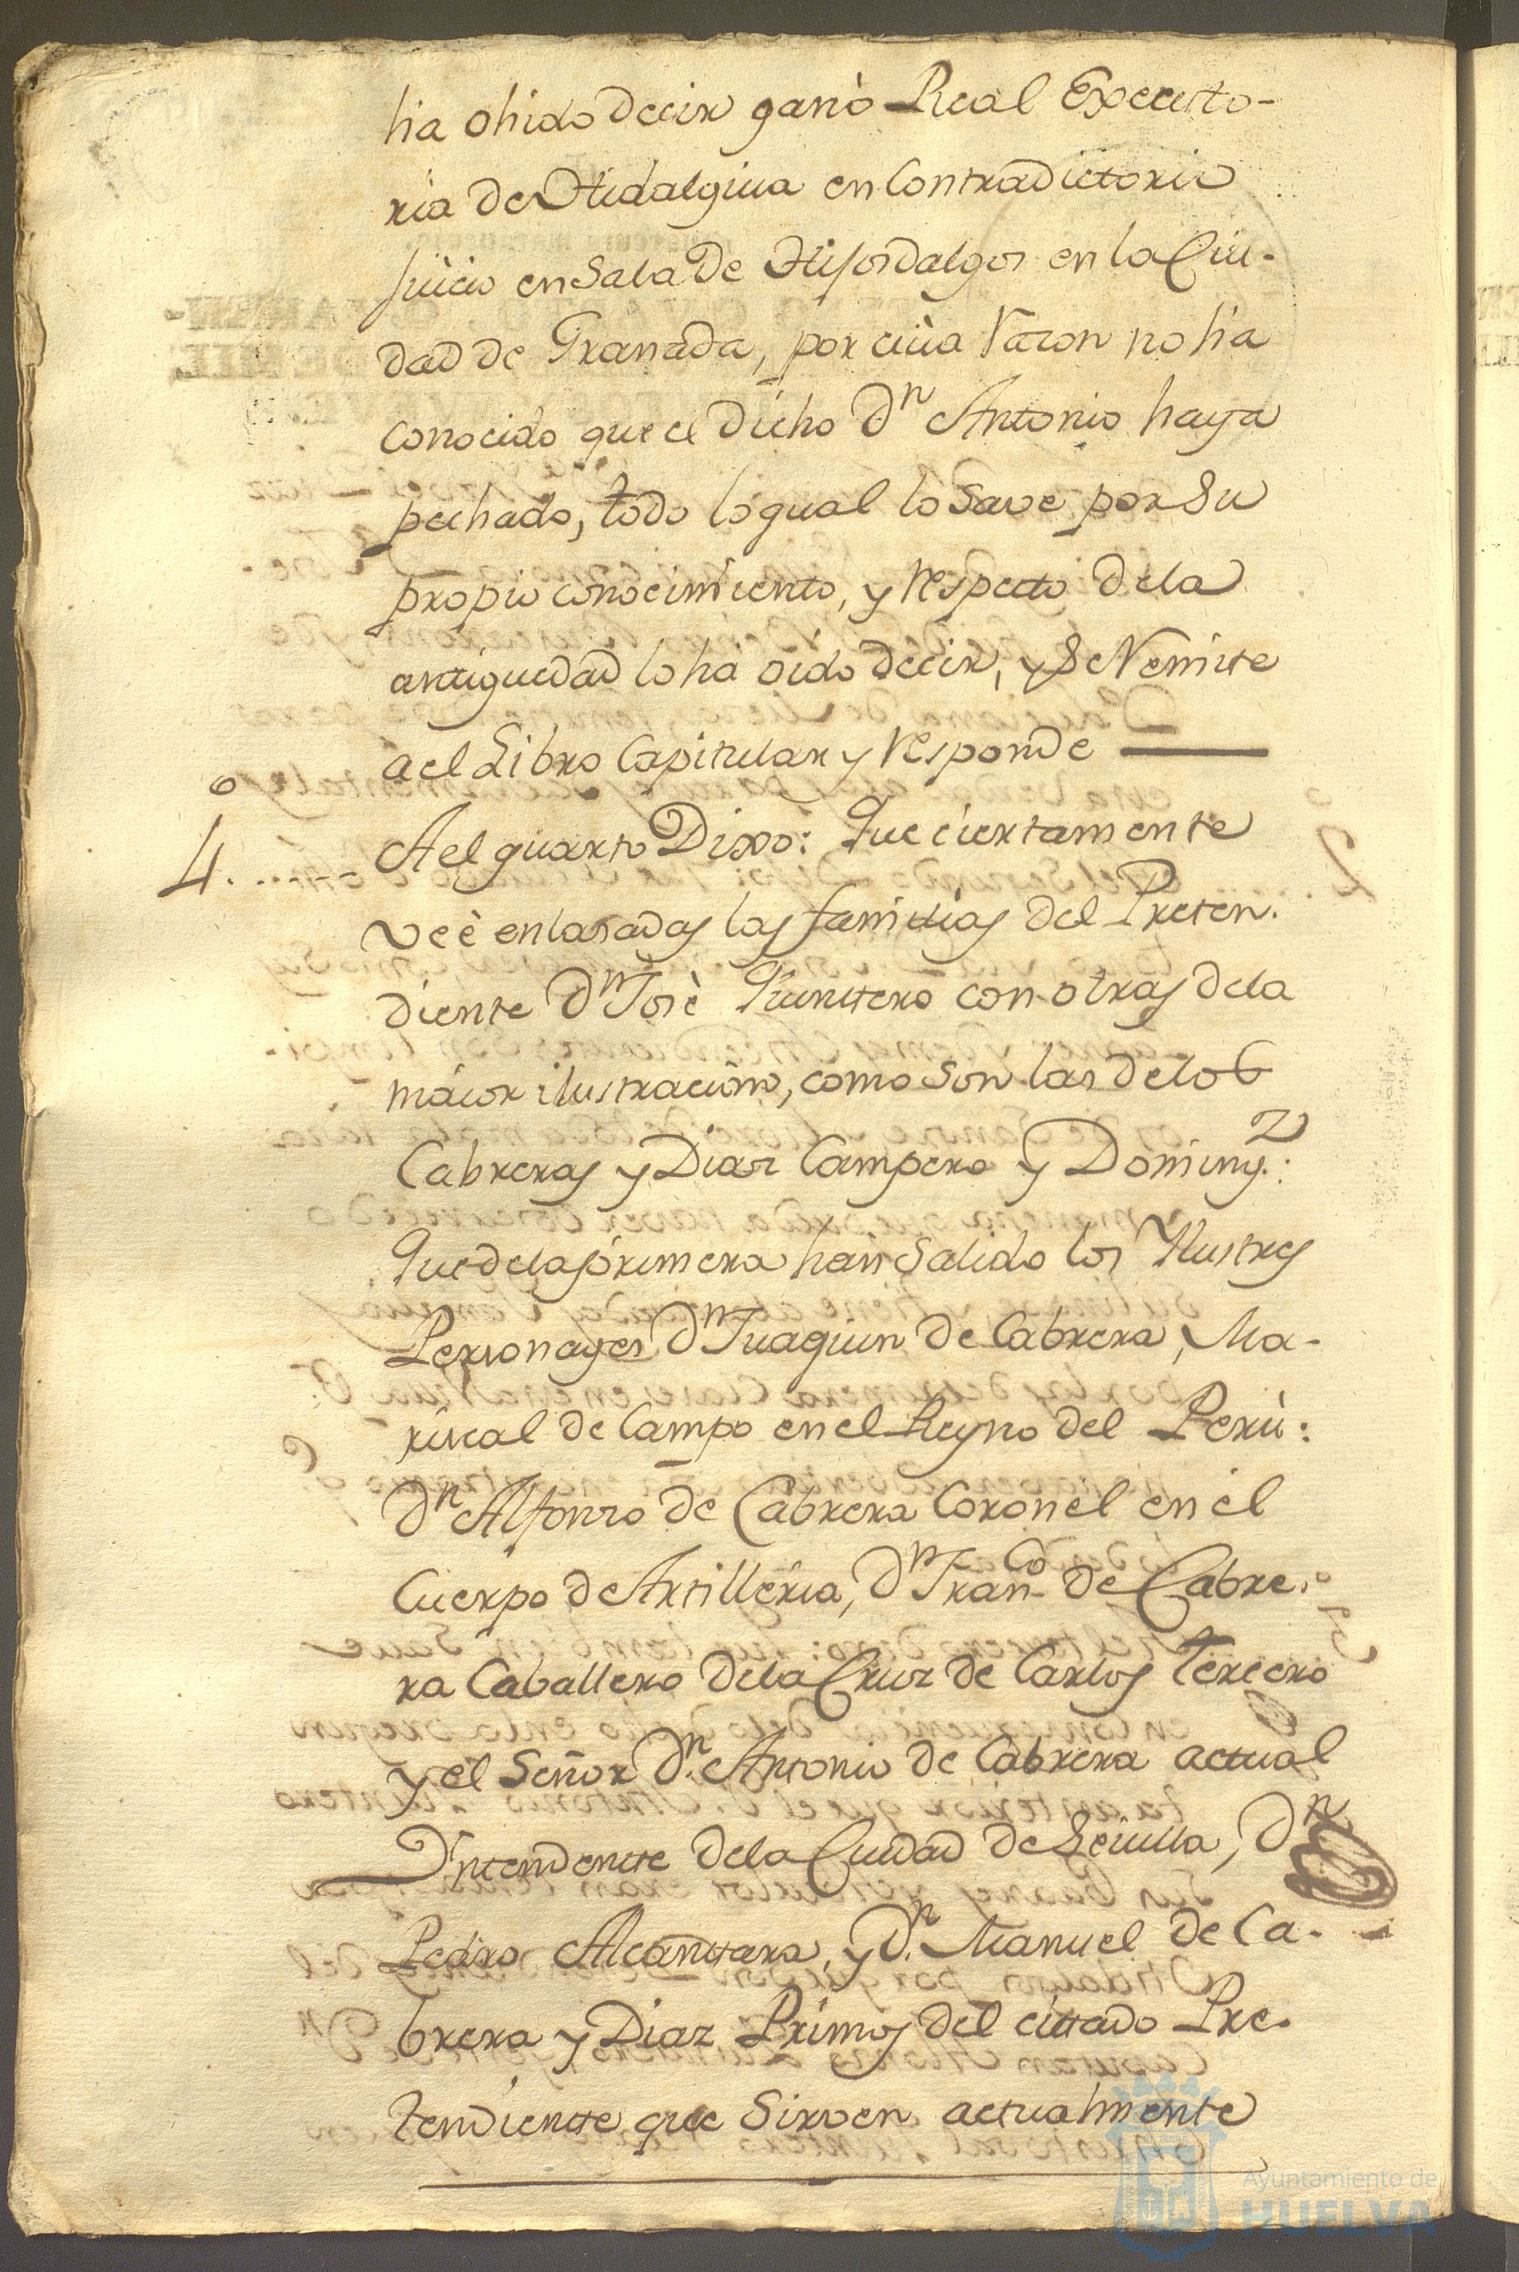 ha ohido decir ganò Real Executo-
ria de Hidalguia en Contradictorio
juicio en Sala de Hijosdalgos en la Ciu-
dad de Granada, por cuia razon no ha
conocido que el dicho Dn Antonio haya
pechado, todo lo qual lo save por su
propio conocimiento, y respecto de la
antiguedad lo ha oido decir, y se remite
a el Libro Capitular y responde
4.º A el quarto Dixo: Que ciertamente
veè enlasadas las familias del Preten-
diente Dn Josè Quintero con otras de la
maior ilustracion, como son las de los
Cabreras y Diaz Campero y Domingz:
Que de las primera han salido los Ilustres
Personages Dn Juaquin de Cabrera, Ma-
riscal de Campo en el Reyno del Perù:
Dn Alfonzo de Cabrera Coronel en el
Cuerpo de Artilleria, Dn Franco de Cabre-
ra Caballero de la Cruz de Carlos Tercero
y el Señor Dn Antonio de Cabrera actual
Yntendente de la Ciudad de Sevilla, Dn
Pedro Alcantara, y Dn Manuel de Ca-
brera y Diaz Primos del cittado Pre-
tendiente que sirven actualmente
Ayuntamiento de
HUELVA